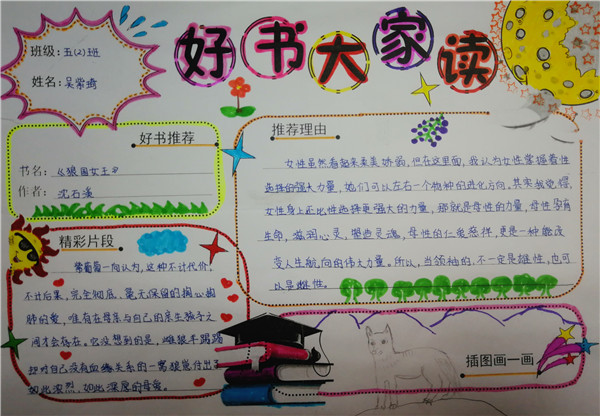 好书大家读
班级：五(2)班
姓名：吴家琦
好书推荐
书名：《狼国女王》
作者：沈石溪
推荐理由
女性虽然看起来柔美娇弱，但在这里面，我认为女性掌握着性
选择的强大力量，她们可以左右一个物种的进化方向，其实我觉得，
女性身上还比性选择更强大的力量，那就是母性的力量，母性孕育
生命，滋润心灵，塑造灵魂，母性的仁爱慈祥，更是一种能改
变人生航向的伟大力量。所以，当领袖的，不一定是雄性，也可
以是雌性。
精彩片段
紫葡萄一向认为，这种不计代价，
不计后果，完全彻底、毫无保留的掏心掏
肺的爱，唯有在母亲与自己的亲生孩子之
间才会存在。它没想到的是，雌狼卡蹋蹋
却对自己没有血缘关系的一窝狼崽付出了
如此浓烈、如此深厚的母爱。
插图画一画